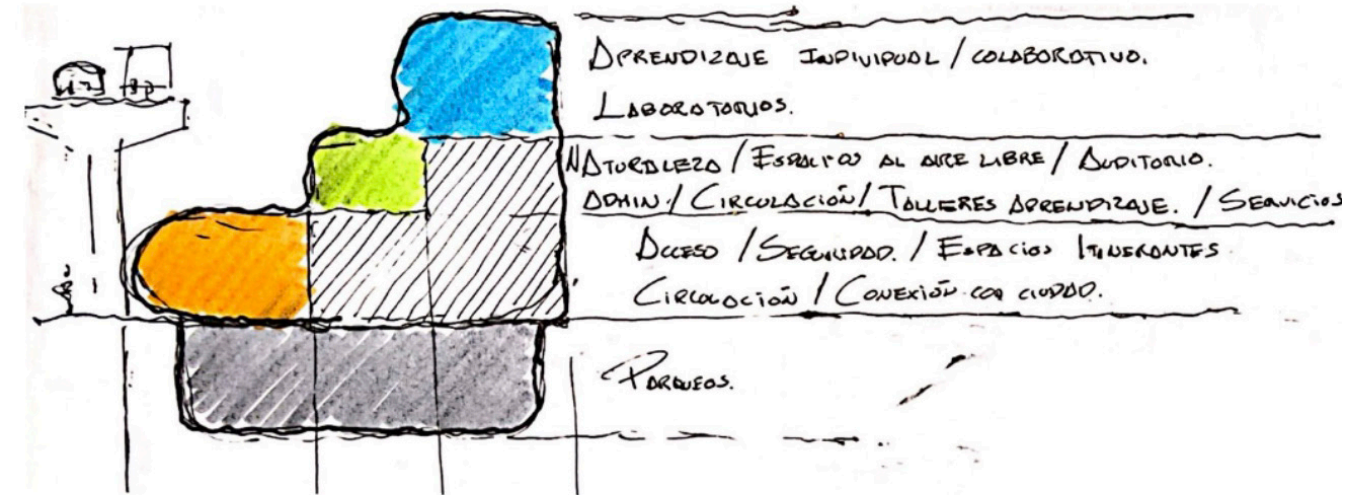 APRENDIZAJE INDIVIDUAL / COLABORATIVO.
LABORATORIOS.
NATURALEZA / ESPACIOS AL AIRE LIBRE / AUDITORIO.
ADMIN. / CIRCULACIÓN / TALLERES APRENDIZAJE. / SERVICIOS
ACCESO / SEGURIDAD. / ESPACIOS ITINERANTES
CIRCULACIÓN / CONEXIÓN CON CIUDAD.
PARQUEOS.